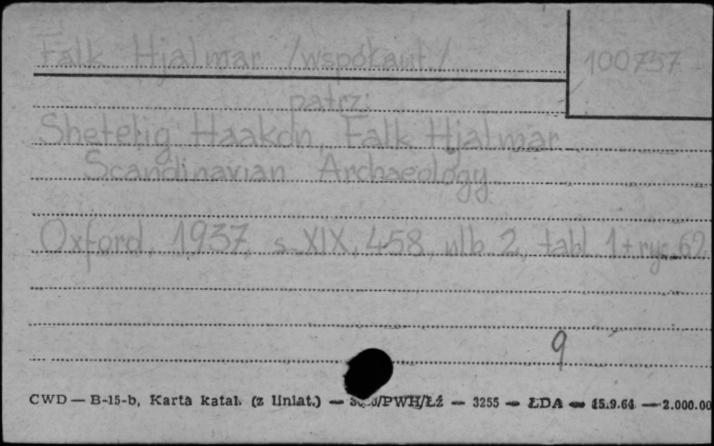 Falk Hjalmar /współaut./
100757
patrz:
Shetelig Haakon, Falk Hjalmar
Scandinavian Archaeology
Oxford, 1937, s. XIX, 458, nlb. 2, tabl. 1 + ryc. 62
9
CWD — B-15-b, Karta katal. (z liniat.) — /PWH/Łź — 3255 — ŁDA — 15.9.64 — 2.000.00